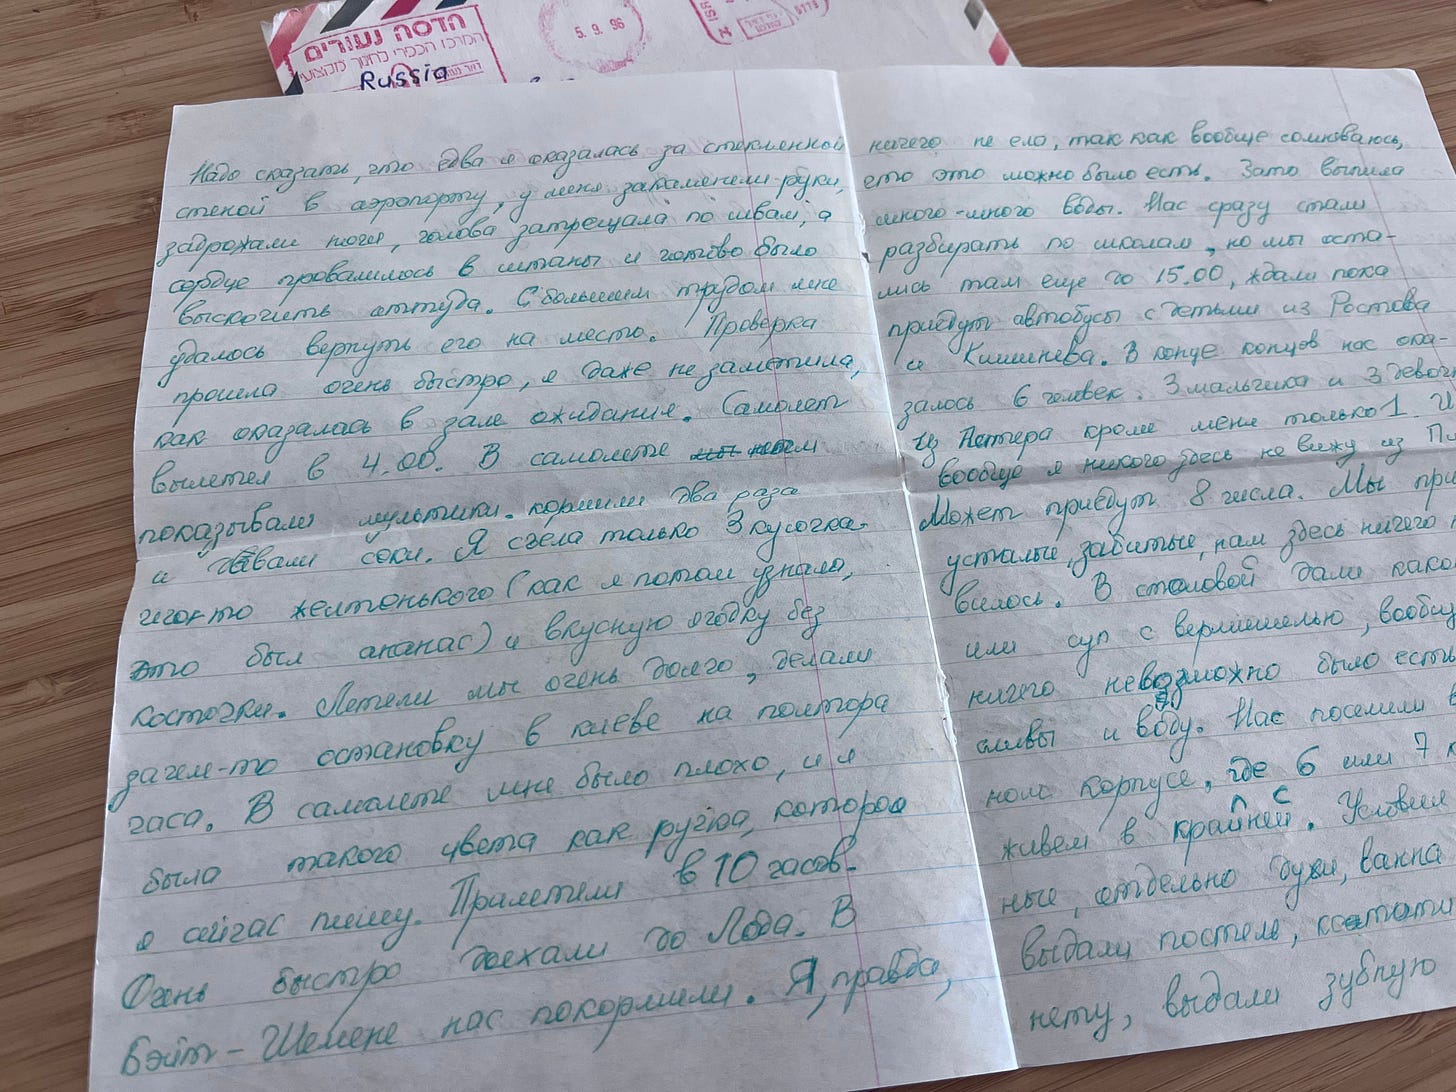 הדסה נעורים
המרכז הכפרי לחנוך מקצועי
דאר
Russia
5.9.96
Надо сказать, что едва я оказалась за стеклянной
стеной в аэропорту, у меня закаменели руки,
задрожали ноги, голова затрещала по швам, а
сердце провалилось в штаны и готово было
выскочить оттуда. С большим трудом мне
удалось вернуть его на место. Проверка
прошла очень быстро, я даже не заметила,
как оказалась в зале ожидания. Самолет
вылетел в 4.00. В самолете
показывали мультики. кормили два раза
и давали соки. Я съела только 3 кусочка
чего-то желтенького (как я потом узнала,
это был ананас) и вкусную ягодку без
косточки. Летели мы очень долго, делали
зачем-то остановку в киеве на полтора
часа. В самолете мне было плохо, и я
была такого цвета как ручка, которой
я сейчас пишу. Прилетели в 10 часов.
Очень быстро доехали до Лода. В
Бэйт-Шемене нас покормили. Я, правда,
ничего не ела, так как вообще сомневаюсь,
что это можно было есть. Зато выпила
много-много воды. Нас сразу стали
разбирать по школам, но мы оста-
лись там еще до 15.00, ждали пока
приедут автобусы с детьми из Ростова
и Кишинева. В конце концов нас ока-
залось 6 человек. 3 мальчика и 3 девоч
Из Питера кроме меня только 1. И
вообще я никого здесь не вижу из П
Может приедут 8 числа. Мы при
усталые, забитые, нам здесь ничего
вилось. В столовой дали како
или суп с вермишелью, вообщ
ничего невозможно было есть
сливы и воду. Нас поселили в
ном корпусе, где 6 или 7 к
живем в крайней. Условия
ные, отдельно душ, ванна
выдали постели, кстати
нету, выдали зубную